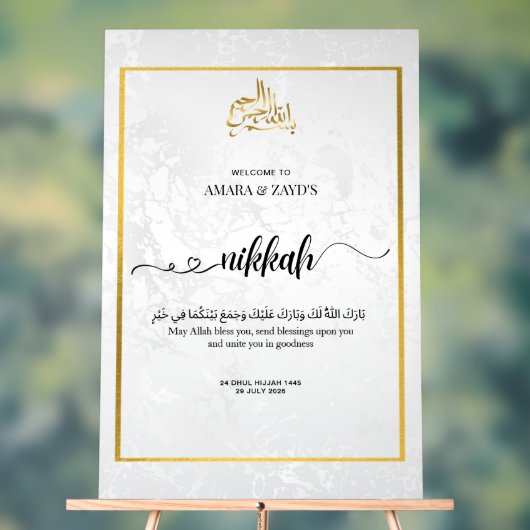 بسم الله الرحمن الرحيم
WELCOME TO
AMARA & ZAYD'S
nikkah
بَارَكَ اللهُ لَكَ وَبَارَكَ عَلَيْكَ وَجَمَعَ بَيْنَكُمَا فِي خَيْرٍ
May Allah bless you, send blessings upon you
and unite you in goodness
24 DHUL HIJJAH 1445
29 JULY 2026